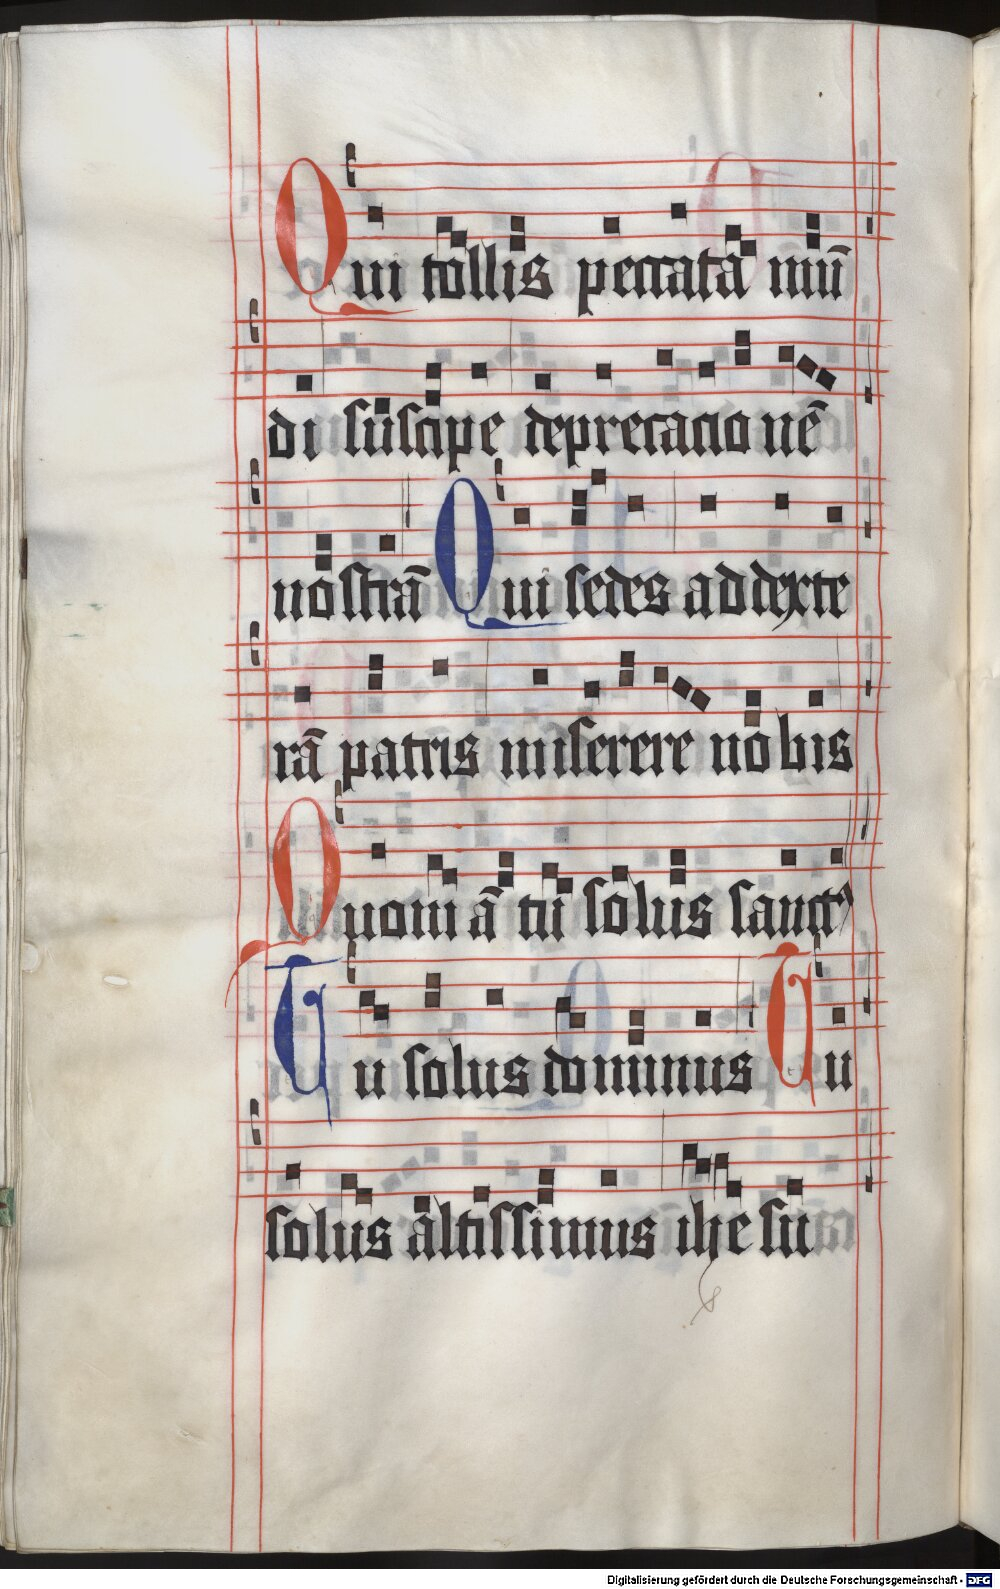 Qui tollis peccata mūū
di suscipe deprecacio nē
nostrā Qui sedes ad dexte
rā patris miserere nobis
Quoni ā tu solus sanctꝰ
Tu solus dominus Tu
solus altissimus ihe su
Digitalisierung gefördert durch die Deutsche Forschungsgemeinschaft - DFG